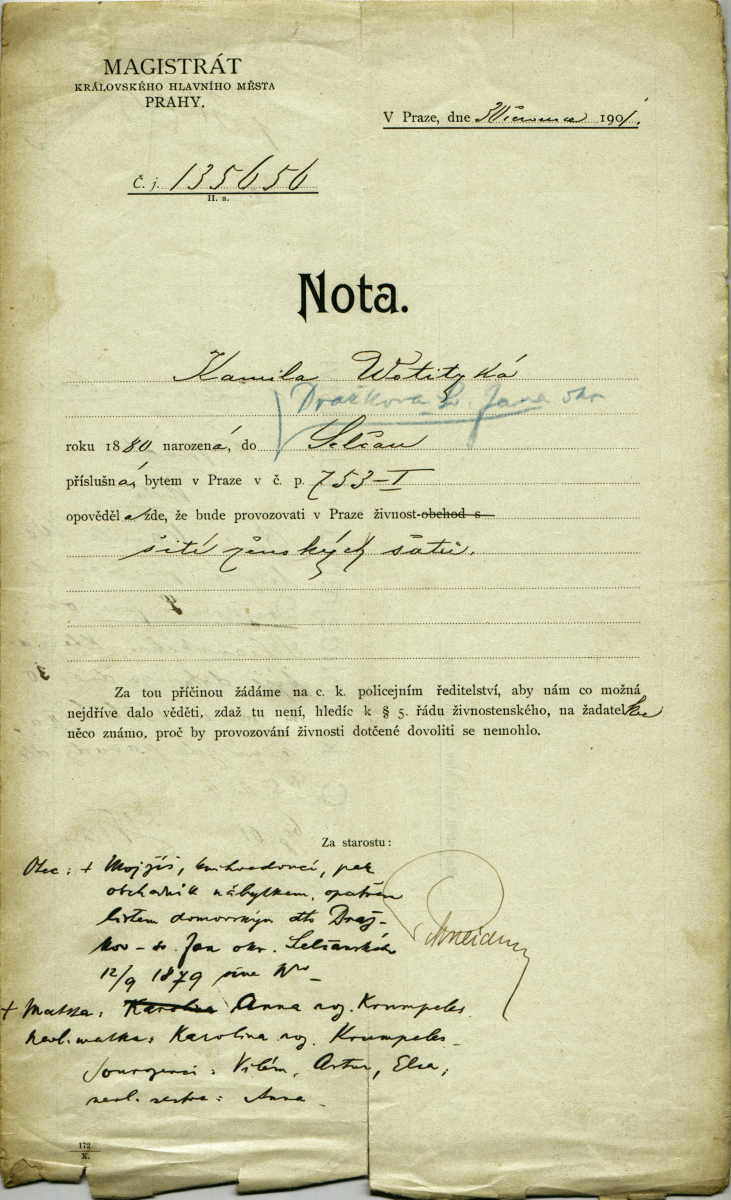 MAGISTRÁT
KRÁLOVSKÉHO HLAVNÍHO MĚSTA
PRAHY.
V Praze, dne 3 července 1901.
Č. j. 135656
II. a.
Nota.
Kamila Wotitzká
Dražkova Sv. Jana okr
roku 1880 narozená, do Selčan
příslušná, bytem v Praze v č. p. 753-I
opověděla zde, že bude provozovati v Praze živnost obchod s
šití ženských šatů.
Za tou příčinou žádáme na c. k. policejním ředitelství, aby nám co možná
nejdříve dalo věděti, zdaž tu není, hledíc k § 5. řádu živnostenského, na žadatelku
něco známo, proč by provozování živnosti dotčené dovoliti se nemohlo.
Za starostu:
Otec: + Mojžíš, knihvedoucí, pak
obchodník nábytkem, opatřen
listem domovským dto Draž-
kov - sv. Jan okr. Selčanského
12/9 1879
+ Matka: Karolina Anna roz. Krumpeles
nevl. matka: Karolina roz. Krumpeles
Sourozenci: Vilém, Artur, Elsa,
nevl. sestra: Anna
172
X.